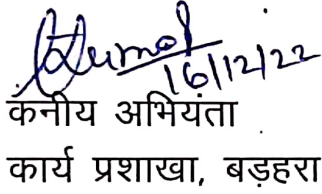 16/12/22
कनीय अभियंता
कार्य प्रशाखा, बड़हरा